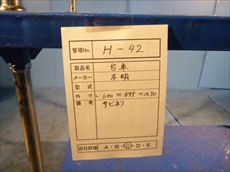 管理No. H-42
製品名 台車
メーカー 不明
型式
外寸 L600 W895 H1030
備考 サビあり
自社評価 A・B・C・D・E